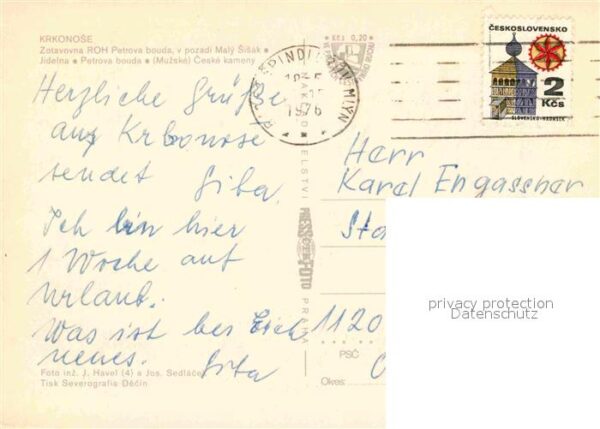 KRKONOŠE
Zotavovna ROH Petrova bouda, v pozadí Malý Šišák •
Jídelna • Petrova bouda • (Mužské) České kameny
Herzliche Grüße
aus Krkonose
sendet Giba.
Ich bin hier
1 Woche auf
Urlaub.
Was ist bei Euch
neues. Giba
Foto inž. J. Havel (4) a Jos. Sedláček
Tisk Severografia Děčín
KčS 0,20
ŠPINDLERŮV MLÝN
1976
NAKLADATELSTVÍ
PRESSFOTO
PRAHA
ČESKOSLOVENSKO
2
Kčs
SLOVENSKO-HRONSEK
Herr
Karel Engassner
1120
PSČ
Okres:
privacy protection
Datenschutz